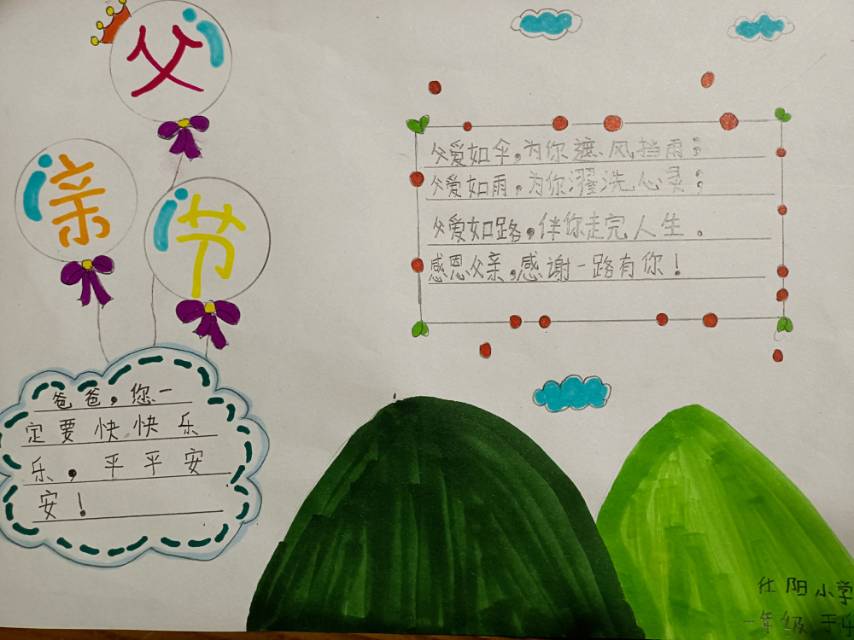 父
亲
节
父爱如伞，为你遮风挡雨；
父爱如雨，为你濯洗心灵；
父爱如路，伴你走完人生。
感恩父亲，感谢一路有你！
爸爸，你一
定要快快乐
乐，平平安
安！
仕阳小学
一年级